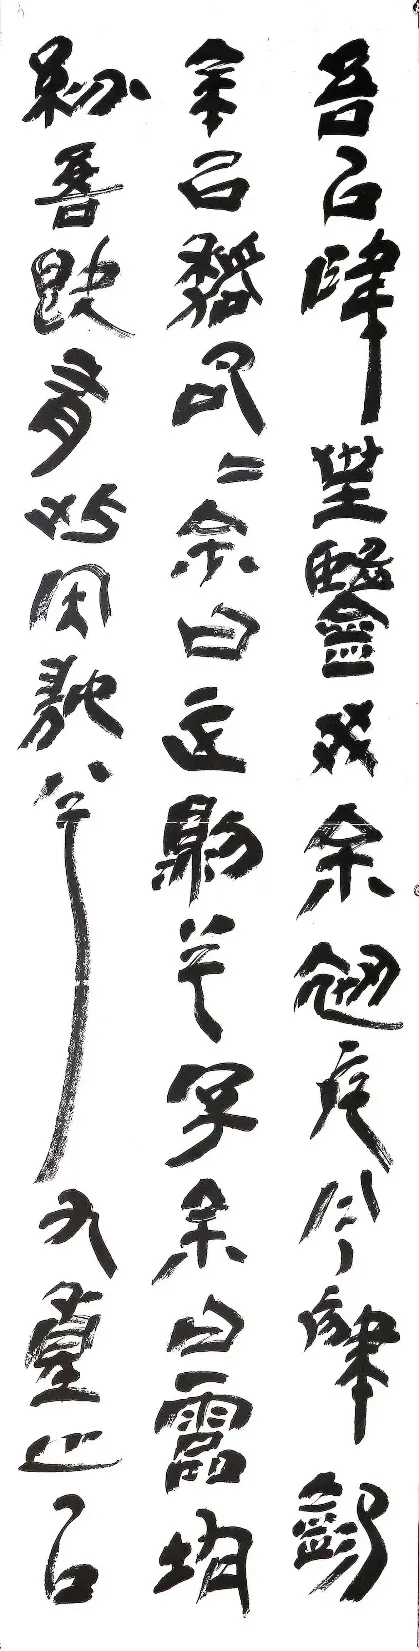 吾以降皇覽揆余初度兮肇錫
余以嘉名〻余曰正則兮字余曰靈均
紛吾既有此內美兮又重之以